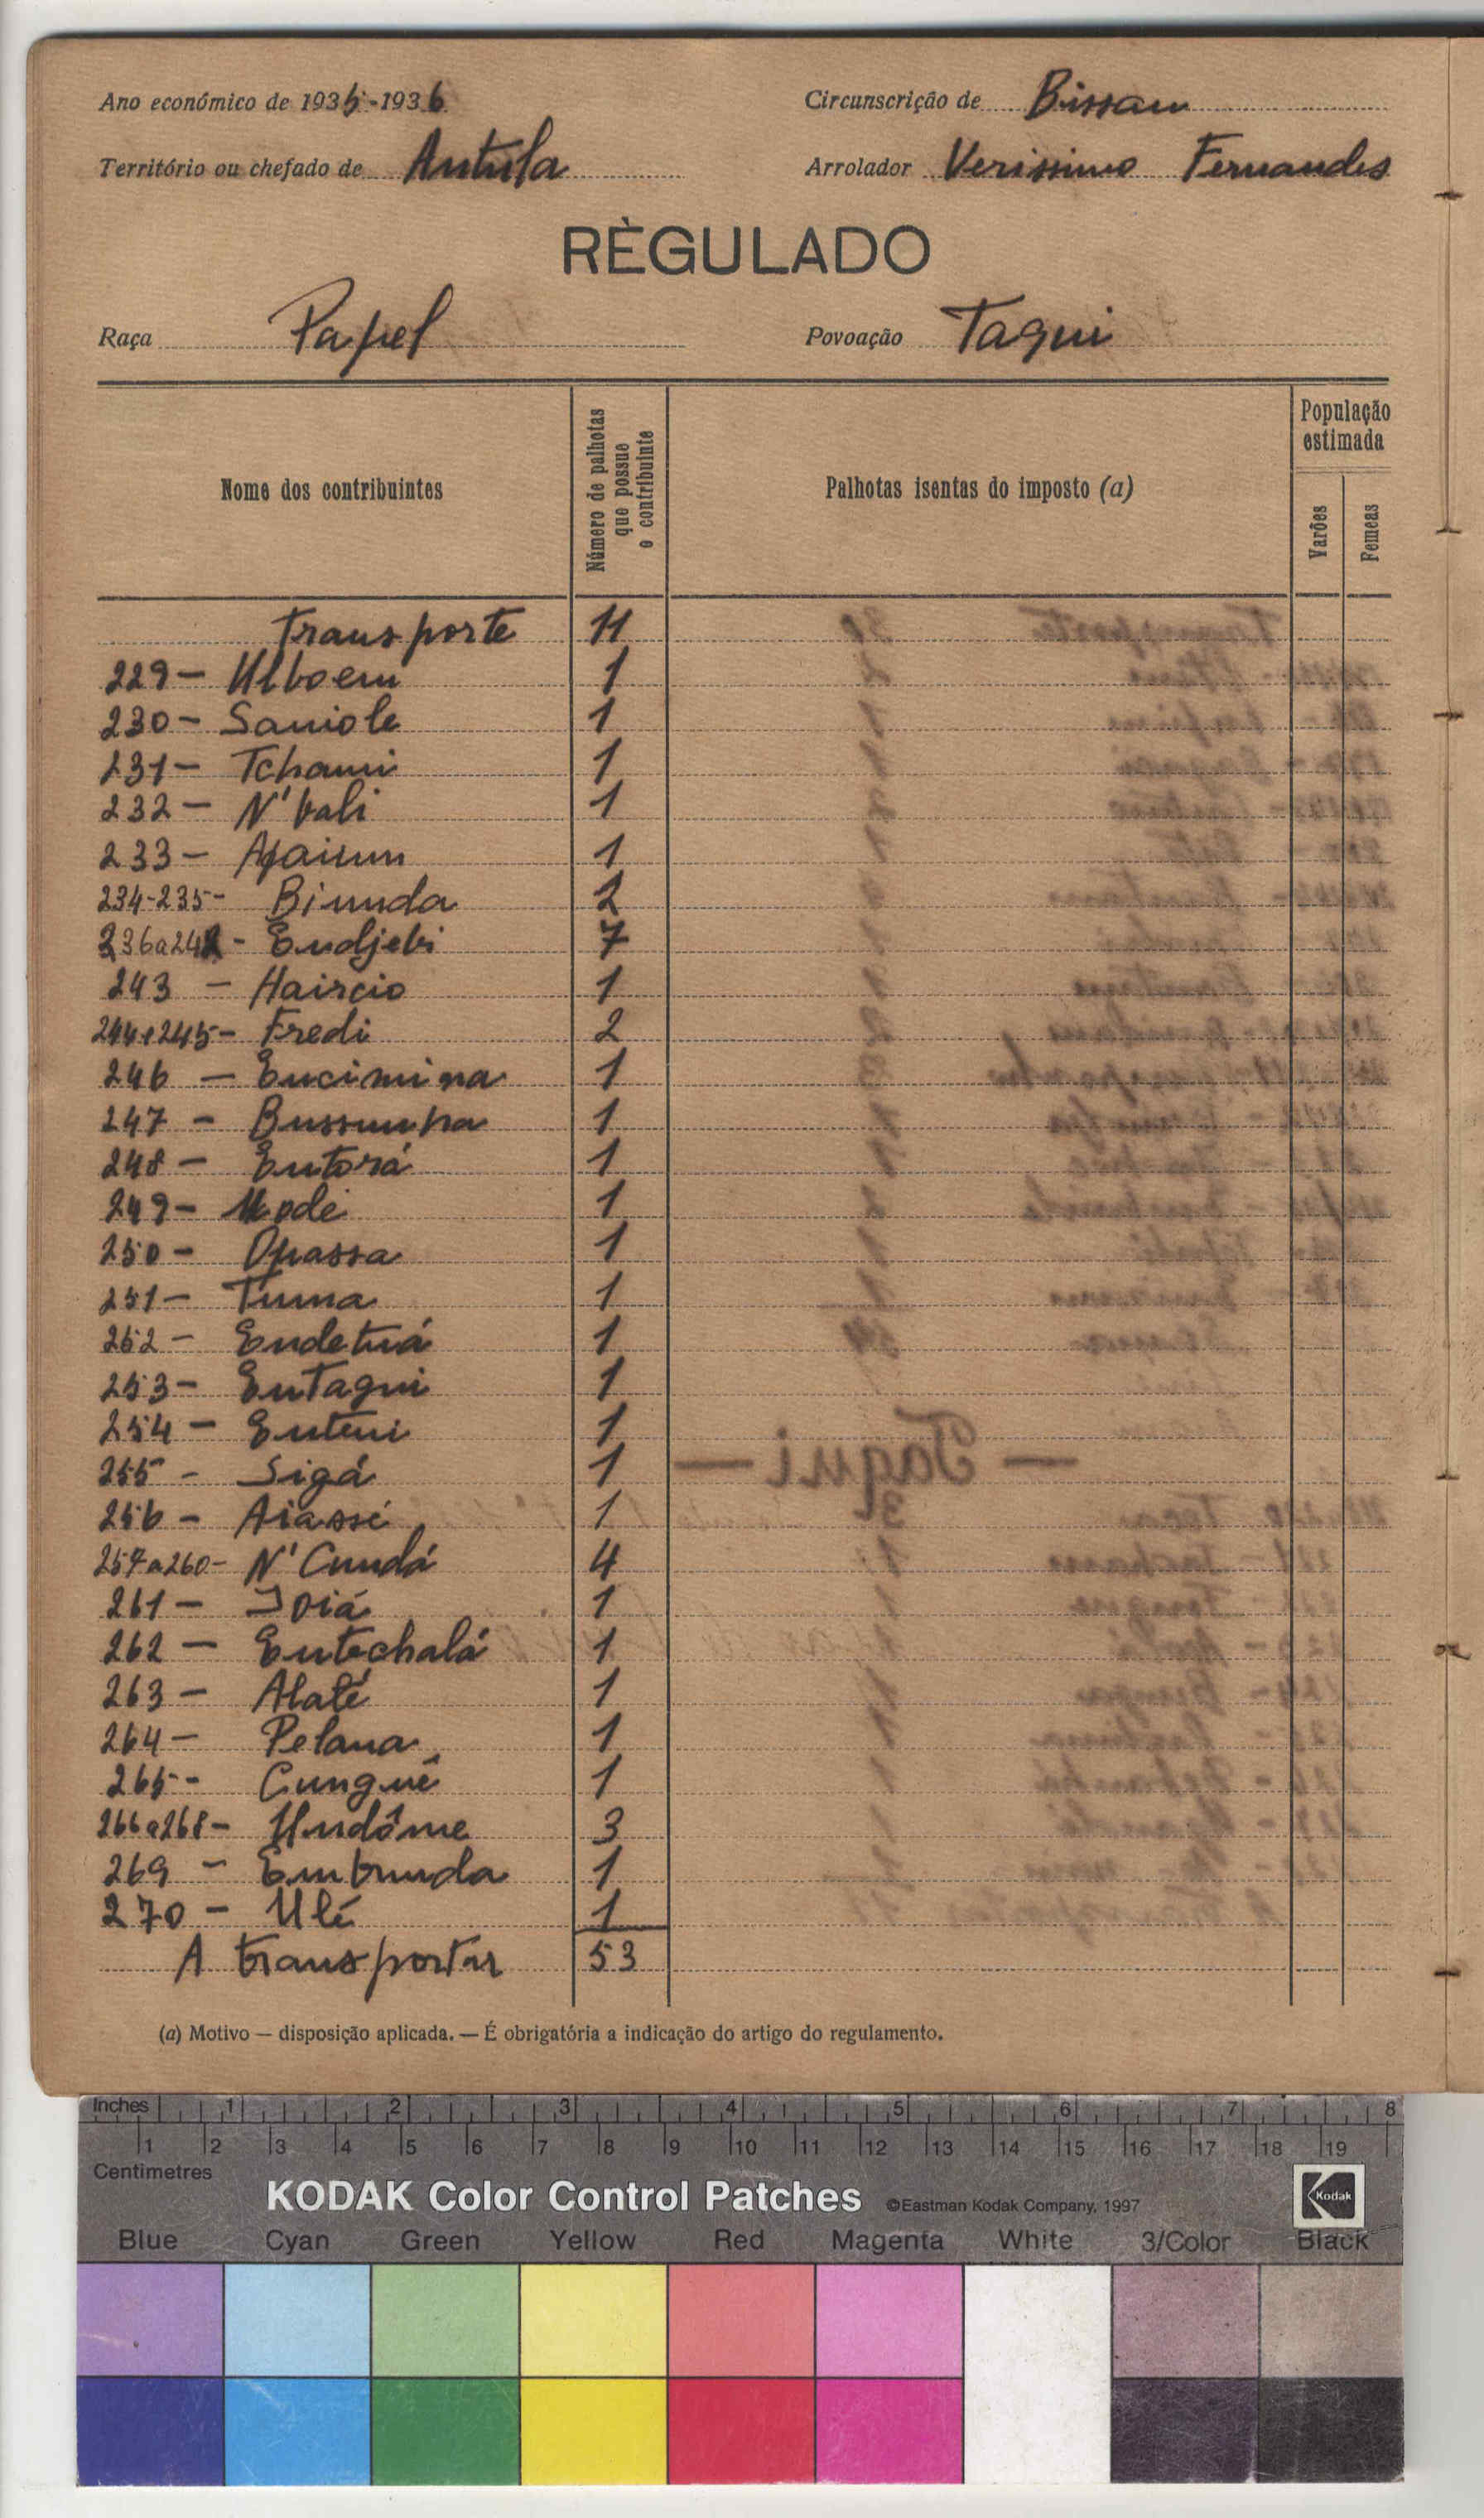 Ano económico de 1935-1936 Circunscrição de Bissau
Território ou chefado de Antula Arrolador Verissimo Fernandes
RÈGULADO
Raça Papel Povoação Taqui
Nome dos contribuintes
Número de palhotas que possue o contribuinte
Palhotas isentas do imposto (a)
População estimada
Varões
Femeas
Transporte 11
229 - Ulboem 1
230 - Saniole 1
231 - Tchami 1
232 - N'bali 1
233 - 1
234-235 - Biunda 2
236a242 - Endjebi 7
243 - Haircio 1
244e245 - Fredi 2
246 - Encimina 1
247 - Bussumha 1
248 - Entorá 1
249 - Mode 1
250 - Opassa 1
251 - Tuma 1
252 - Endetuá 1
253 - Entaqui 1
254 - Enteni 1
255 - Sigá 1
256 - Aiassé 1
257a260 - N'Cundá 4
261 - Ioiá 1
262 - Entechalá 1
263 - Alaté 1
264 - Pelana 1
265 - Cungué 1
266a268 - Undôme 3
269 - Embunda 1
270 - Ulé 1
A transportar 53
(a) Motivo — disposição aplicada. — É obrigatória a indicação do artigo do regulamento.
Inches 1 2 3 4 5 6 7 8
1 2 3 4 5 6 7 8 9 10 11 12 13 14 15 16 17 18 19
Centimetres
KODAK Color Control Patches ©Eastman Kodak Company, 1997 Kodak
Blue Cyan Green Yellow Red Magenta White 3/Color Black